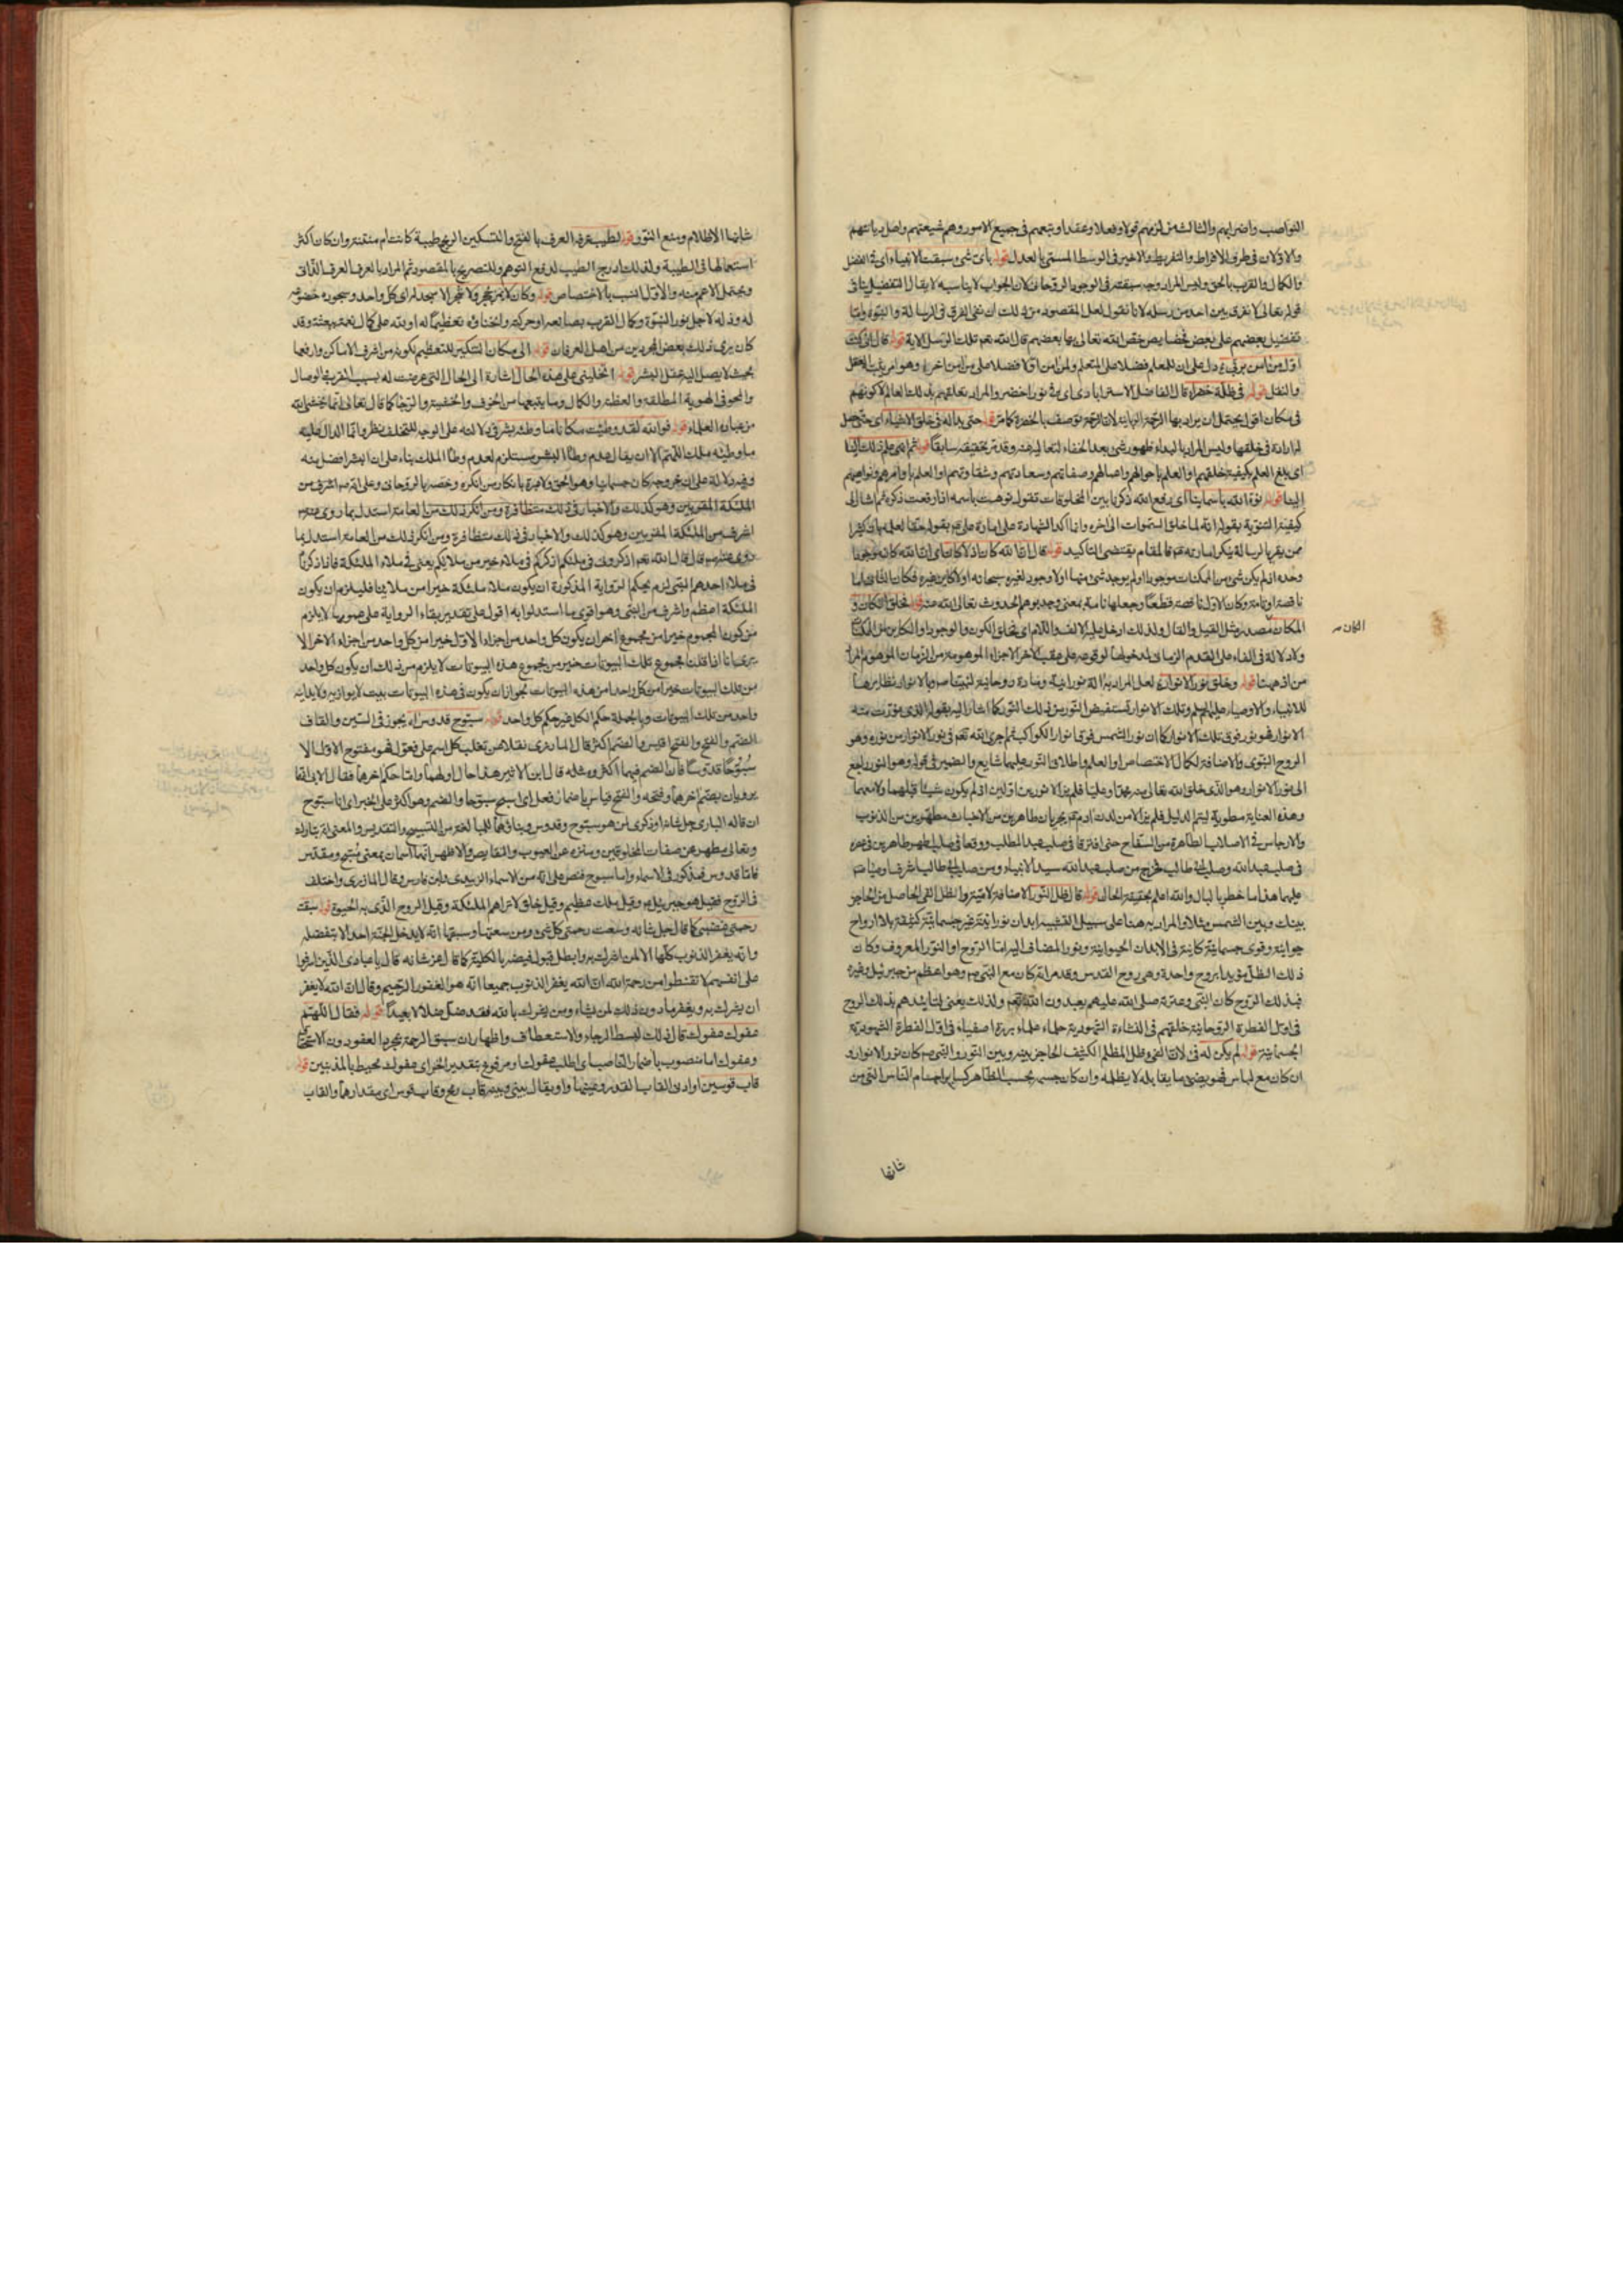 النواصب واضرابهم والثالث من لزمهم قولا وفعلا وعقدا ويتبعهم فى جميع الامور وهم شيعتهم واهل ديانتهم
والاولان فى طرف الافراط والتفريط والاخير فى الوسط المسمى بالعدل قوله باى شىء سبقت الانبياء اى فى الفضل
والكمال والقرب بالحق وليس المراد وجه سبقته فى الوجود الروحانى لان الجواب لا يناسبه لا يقال التفضيل ينافى
قوله تعالى لا نفرق بين احد من رسله لانا نقول لعل المقصود من ذلك ان نفى الفرق فى الرسالة والنبوة واما
تفضيل بعضهم على بعض فبخصايص خص الله تعالى بها بعضهم قال الله تعم تلك الرسل الاية قوله قال انى كنت
اول من امن بربى دل على ان للمعلم فضلا على المتعلم ولمن امن اولا فضلا على من امن اخرا وهو امر يثبته العقل
والنقل قوله فى ظلة خضراء قال الفاضل الاسترابادى اى فى نور اخضر والمراد تعلقهم بذلك العالم لا كونهم
فى مكان اقول يحتمل ان يراد بها الرحمة الربانية لان الرحمة توصف بالخضرة كما مر قوله حتى بدا له فى خلق الاشياء اى حتى حصل
له ارادة فى خلقها وليس المراد بالبداء ظهور شىء بعد الخفاء لتعاليه عنه وقد مر تحقيقه سابقا قوله ثم انهى علم ذلك الينا
اى بلغ العلم بكيفية خلقهم او العلم باحوالهم واعمالهم وصفاتهم وسعادتهم وشقاوتهم او العلم باوامرهم ونواهيهم
الينا قوله نوه الله باسمائنا اى رفع الله ذكرنا بين المخلوقات تقول نوهت باسمه اذا رفعت ذكره ثم اشار الى
كيفية التنويه بقوله انه لما خلق السموات الى اخره وانما اكد الشهادة على امارة على عم بقوله حقا لعلمه بان كثيرا
ممن يقر بالرسالة ينكر امارته عم فالمقام يقتضى التاكيد قوله قال ان الله كان اذ لا كان اى ان الله كان موجودا
وحده اذ لم يكن شىء من الممكنات موجودا او لم يوجد شىء منها او لا وجود لغيره سبحانه او لا كاين غيره فكان الثانى اما
ناقصة او تامة وكان الاول ناقصة قطعا وجعلها تامة بمعنى وجد يوهم الحدوث تعالى الله عنه قوله فخلق الكان و
المكان مصدر مثل القيل والقال ولذلك ادخل عليه الالف واللام اى فخلق الكون والوجود او الكاين من الممكنات
الكان صح
ولا دلالة فى الفاء على التقدم الزمانى لمدخولها لوقوعه على عقب اخر الاجزاء الموهومة من الزمان الموهوم المراد
من اذ ههنا قوله وخلق نور الانوار لعل المراد به الة نورانية ومادة روحانية لنبينا ص وبالانوار نظايرها
للانبياء والاوصياء عليهم السلم وتلك الانوار تستفيض النور من ذلك النور كما اشار اليه بقوله الذى نورت منه
الانوار فهو نور فوق تلك الانوار كما ان نور الشمس فوق انوار الكواكب ثم اجرى الله تعم فى نور الانوار من نوره وهو
الروح النبوى والاضافة لكمال الاختصاص او العلم واطلاق النور عليهما شايع والضمير فى قوله وهو النور راجع
الى نور الانوار وهو الذى خلق الله تعالى منه محمدا وعليا فلم يزالا نورين اولين اذ لم يكون شيئا قبلهما ولا معهما
وهذه العناية مطوية ليتم الدليل فلم يزالا من لدن ادم عم يجريان طاهرين من الاخباث مطهرين من الذنوب
والارجاس فى الاصلاب الطاهرة من السفاح حتى افترقا فى صلب عبد المطلب ووقعا فى صلب اطهر طاهرين فى عصره
فى صلب عبد الله وصلب ابى طالب فخرج من صلب عبد الله سيد الانبياء ومن صلب ابى طالب اشرف اوصيائه
عليهما هذا ما خطر بالبال والله اعلم بحقيقة الحال قوله قال ظل النور الاضافة لامية والظل الفىء الحاصل من الحاجز
بينك وبين الشمس مثلا والمراد به هنا على سبيل التشبيه ابدان نورانية غير جسمانية كثيفة بلا ارواح
حيوانية وقوى جسمانية كاينة فى الابدان الحيوانية ونور المضاف اليه اما الروح او النور المعروف وكان
ذلك الظل مؤيدا بروح واحدة وهى روح القدس وقد مر انه كان مع النبى ص وهو اعظم من جبرئيل وغيره
فبذلك الروح كان النبى وعترته صلى الله عليهم يعبدون الله تعم ولذلك يعنى لتاييدهم بذلك الروح
فى اول الفطرة الروحانية خلقهم فى النشاءة الشهودية حلماء علماء بررة اصفياء فى اول الفطرة الشهودية
الجسمانية قوله لم يكن له فىء لان الفىء وظل المظلم الكثيف الحاجز بينه وبين النور والنبى ص كان نور الانوار و
ان كان مع لباس فهو يضىء ما يقابله لا يظلمه وان كان جسمه بحسب الظاهر كساير اجسام الناس التى من
شانها
شانها الاظلام ومنع النور قوله لطيب عرفه العرف بالفتح والتسكين الريح طيبة كانت ام منتنة وان كان اكثر
استعمالها فى الطيبة ولذلك ادرج الطيب لدفع التوهم وللتصريح بالمقصود ثم المراد بالعرف العرف الذاتى
ويحتمل الاعم منه والاول انسب بالاختصاص قوله وكان لا يمر بحجر ولا شجر الا سجد له اى كل واحد وسجوده خضوعه
له وذله لاجل نور النبوة وكمال القرب بصانعه او حركته وانحناؤه تعظيما له او لله على كمال نعمته ببعثته وقد
كان يرى ذلك بعض المجردين من اهل العرفان قوله الى مكان التنكير للتعظيم لكونه من اشرف الاماكن وارفعها
بحيث لا يصل اليه عقل البشر قوله اتخلينى على هذه الحال اشارة الى الحال التى عرضت له بسبب القرب والوصال
والمحو فى الهوية المطلقة والعظمة والكمال وما يتبعها من الخوف والخشية والرجا كما قال تعالى انما يخشى الله
من عباده العلماء قوله فوالله لقد وطئت مكانا ما وطئه بشر فى دلالته على الوجه للتخلف نظر وانما الدال عليه
ما وطئه ملك اللهم الا ان يقال عدم وطأ البشر مستلزم لعدم وطأ الملك بناء على ان البشر افضل منه
وفيه دلالة على ان عروجه كان جسمانيا وهو الحق ولا عبرة بانكار من انكره وخصه بالروحانى وعلى انه ص اشرف من
الملئكة المقربين وهو كذلك والاخبار فى ذلك متظافرة ومن انكر ذلك من العامة استدل بما روى عنه ص
اشرف من الملئكة المقربين وهو كذلك والاخبار فى ذلك متظافرة ومن انكر ذلك من العامة استدل بما
روى عنه ص قال قال الله تعم اذكرونى فى ملئكم اذكركم فى ملاء خير من ملايكم يعنى فى ملاء الملئكة فاذا ذكرنا
فى ملاء احدهم النبى لزم بحكم الرواية المذكورة ان يكون ملاء ملئكة خيرا من ملاء نبينا فليلزم ان يكون
الملئكة اعظم واشرف من النبى وهو اقوى ما استدلوا به اقول على تقدير بقاء الرواية على عمومها لا يلزم
من كون المجموع خيرا من مجموع اخر ان يكون كل واحد من اجزاء الاول خيرا من كل واحد من اجزاء الاخر الا
يرى انا اذا قلنا مجموع تلك البيوتات خير من مجموع هذه البيوتات لا يلزم من ذلك ان يكون كل واحد
من تلك البيوتات خيرا من كل واحد من هذه البيوتات لجواز ان يكون فى هذه البيوتات بيت لا يوازيه ولا يدانيه
واحد من تلك البيوتات وبالجملة حكم الكل غير حكم كل واحد قوله سبوح قدوس اه يجوز فى السين والقاف
الضم والفتح والفتح اقيس والضم اكثر قال المازرى نقلا عن ثعلب كل اسم على فعول فهو مفتوح الاول الا
سبوحا قدوسا فان الضم فيهما اكثر ومثله قال ابن الاثير هذا حال اولهما واما حكم اخرهما فقال الابى انهما
يرويان بضم اخرهما وفتحه والفتح قياس باضمار فعل اى اسبح سبوحا والضم وهو اكثر على الخبر اى انا سبوح
ان قاله البارى جل شانه او ذكرى لمن هو سبوح وقدوس وبناؤهما للمبالغة من التسبيح والتقديس والمعنى انه تبارك
وتعالى مطهر عن صفات المخلوقين ومنزه عن العيوب والنقايص والاظهر انهما اسمان بمعنى مسبح ومقدس
فاما قدوس فمذكور فى الاسماء واما سبوح فنص على انه من الاسماء الزبيدى وابن فارس وقال المازرى واختلف
فى الروح فقيل هو جبرئيل وقيل ملك عظيم وقيل خلق لا تراهم الملئكة وقيل الروح الذى به الحيوة قوله سبقت
رحمتى غضبى كما قال جل شانه وسعت رحمتى كل شىء ومن سعتها وسبقها انه لا يدخل الجنة احد الا بتفضله
وانه يغفر الذنوب كلها الا لمن اشرك به وابطل قبول فيضه بالكلية كما قال عز شانه قال يا عبادى الذين اسرفوا
على انفسهم لا تقنطوا من رحمة الله ان الله يغفر الذنوب جميعا انه هو الغفور الرحيم وقال ان الله لا يغفر
ان يشرك به ويغفر ما دون ذلك لمن يشاء ومن يشرك بالله فقد ضل ضلالا بعيدا قوله فقال اللهم
عفوك عفوك قال ذلك لبسط الرجاء والاستعطاف واظهار ان سبق الرحمة بمجرد العفو دون الاستحقاق
وعفوك اما منصوب باضمار الناصب اى اطلب عفوك او مرفوع بتقدير الخبر اى عفوك محيط بالمذنبين قوله
قاب قوسين او ادنى القاب القدر وعينها واو يقال بينى وبينه قاب رمح وقاب قوس اى مقدارهما والقاب